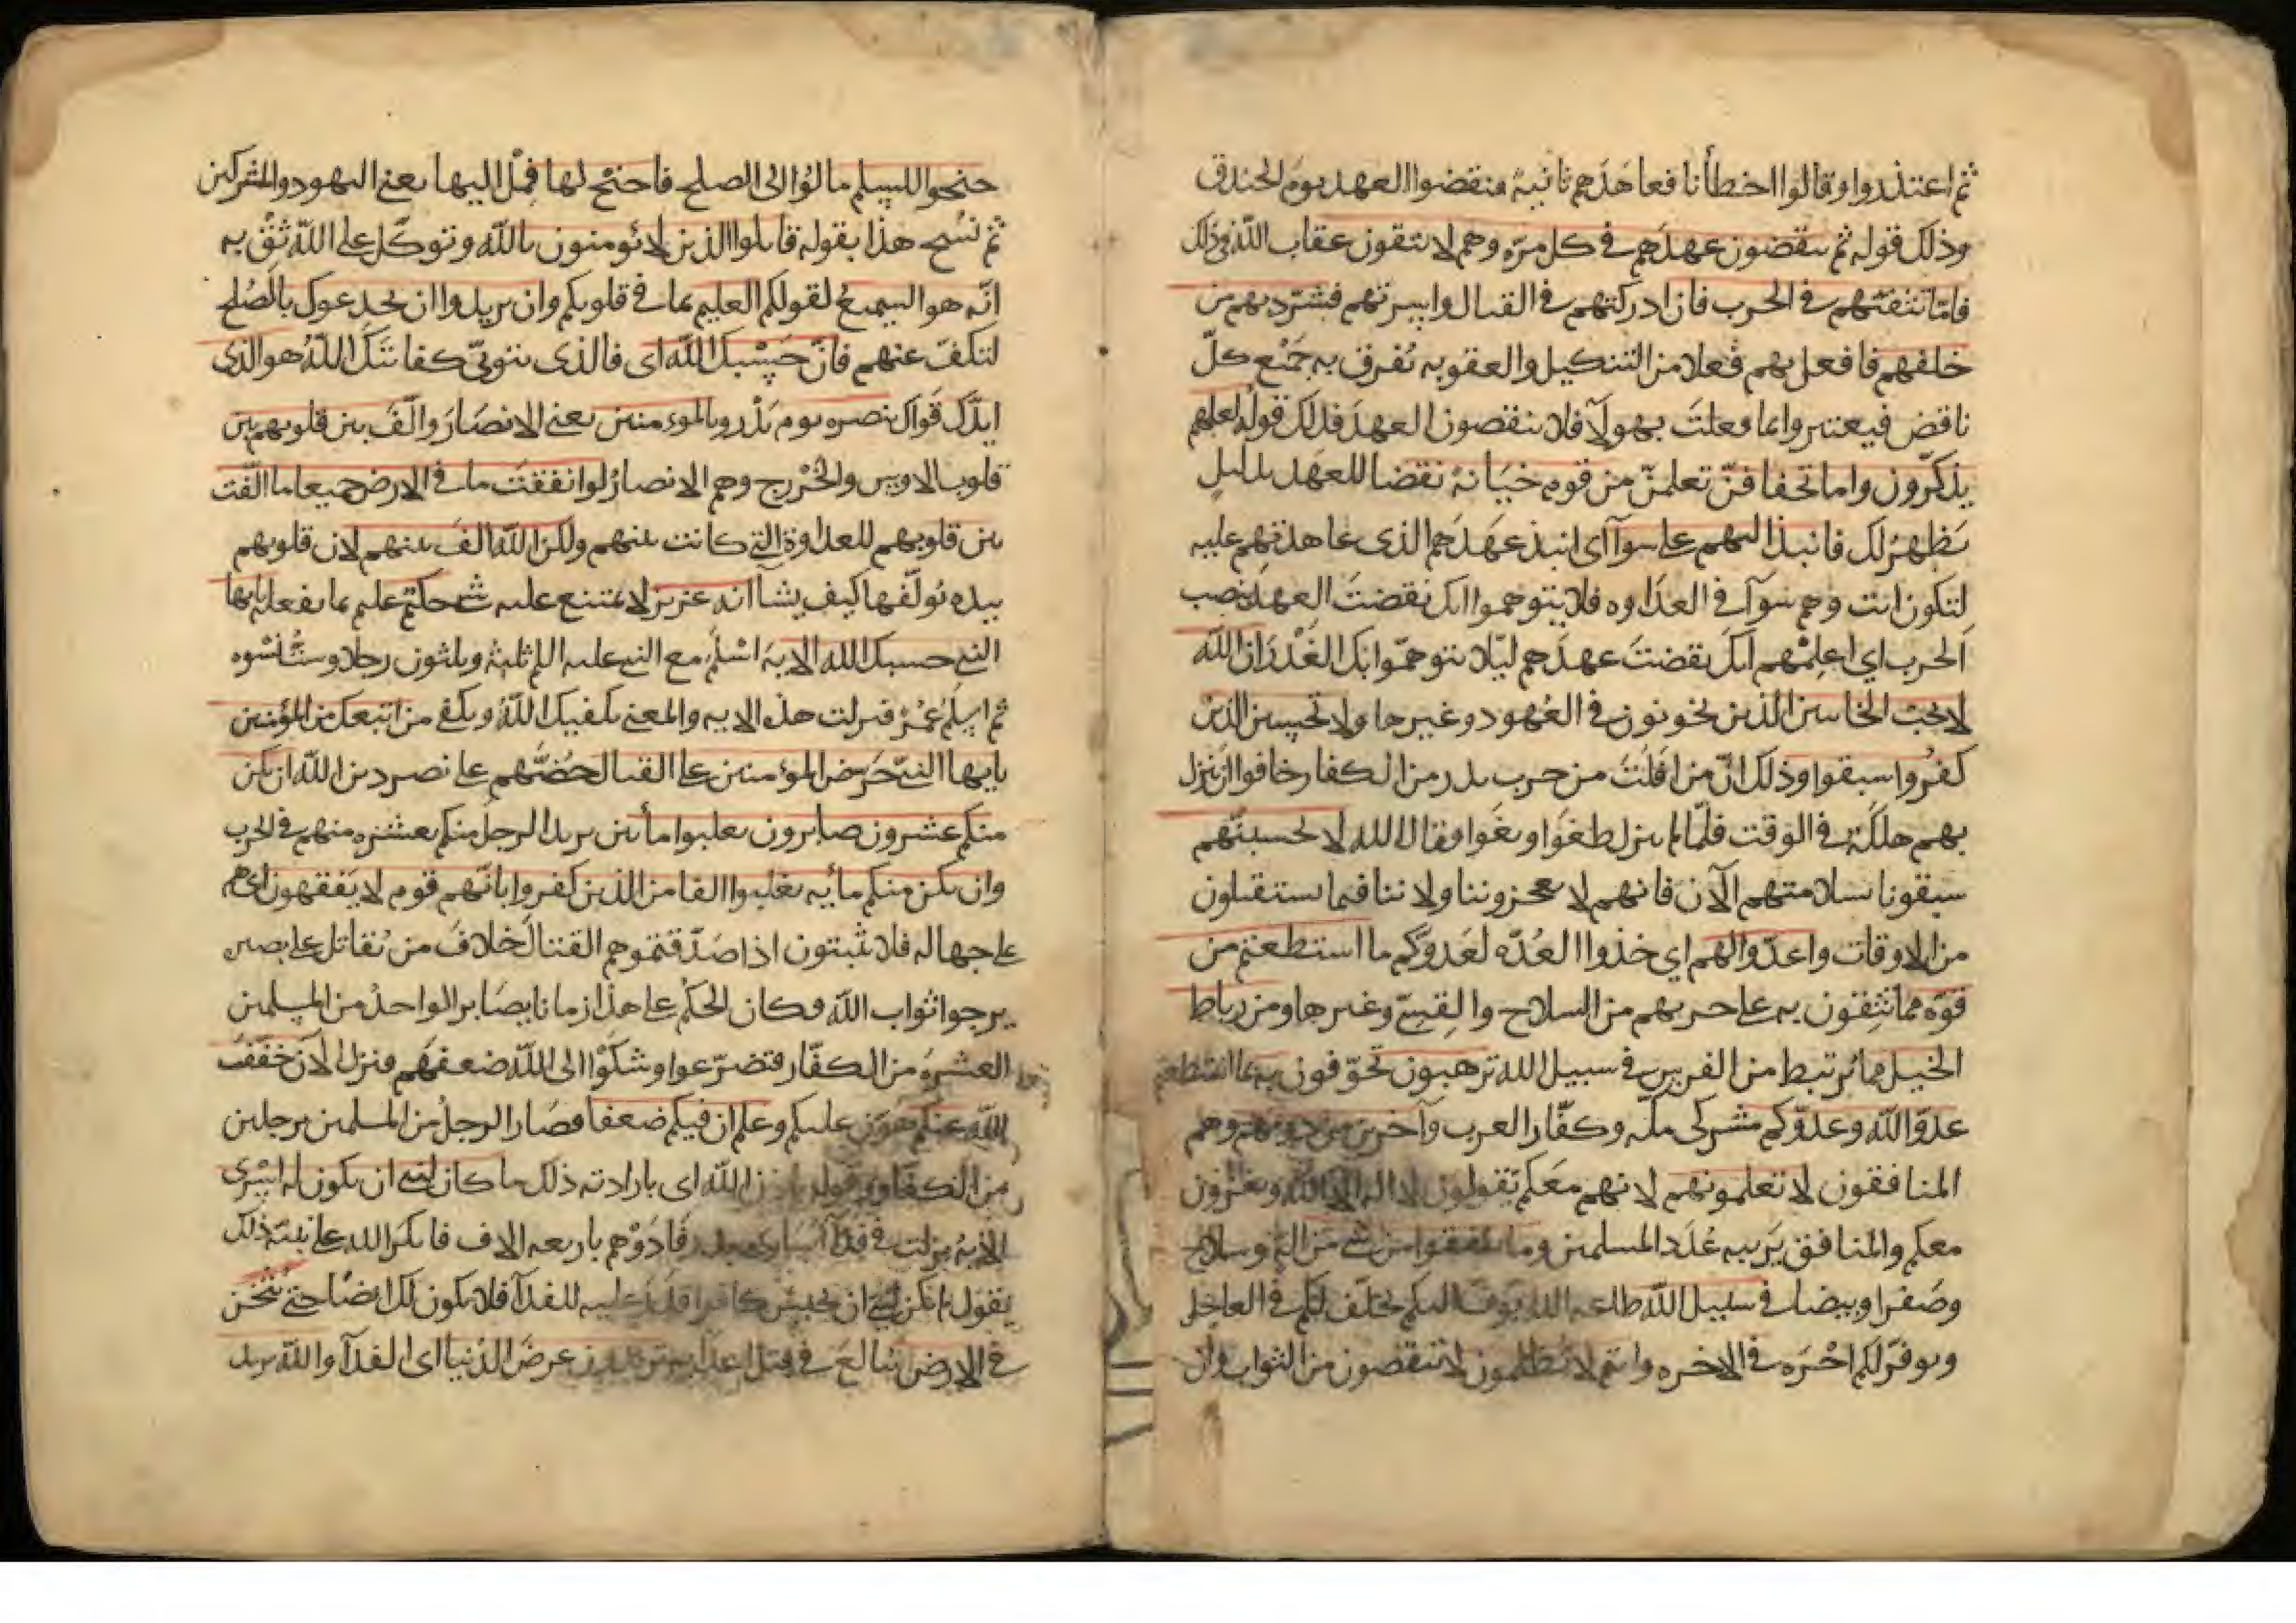 ثم اعتذروا وقالوا اخطأنا فعاهدهم ثانية فنقضوا العهد يوم الخندق
وذلك قوله ثم ينقضون عهدهم في كل مرة وهم لا يتقون عقاب الله في ذلك
فامّا تثقفنّهم في الحرب فان ادركتهم في القتال واسرتهم فشرّد بهم من
خلفهم فافعل بهم فعلا من التنكيل والعقوبه تفرق به جمع كلّ
ناقض فيعتبروا بما فعلت بهولآ فلا ينقضون العهد فذلك قوله لعلهم
يذكّرون واما تخافنّ تعلمنّ من قوم خيانة نقضا للعهد بدليل
يظهر لك فانبذ اليهم على سوآ اى انبذ عهدهم الذى عاهدتهم عليه
لتكون انت وهم سوآ في العداوه فلا يتوهموا انك نقضت العهد بنصب
الحرب اي اعلمهم انك نقضت عهدهم ليلا يتوهموا بك الغدر ان الله
لا يحب الخاينين الذين يخونون في العهود وغيرها ولا تحسبن الذين
كفروا سبقوا وذلك انّ من افلت من حرب بدر من الكفار خافوا ان ينزل
بهم هلكة في الوقت فلمّا لم ينزل طغوا وبغوا وقال الله لا تحسبنّهم
سبقونا بسلامتهم الآن فانهم لا يعجزوننا ولا تنا فيما يستقبلون
من الاوقات واعدّوا لهم اي خذوا العدّه لعدوّكم ما استطعتم من
قوّه مما تتقون به على حربهم من السلاح والقسيّ وغيرها ومن رباط
الخيل مما يرتبط من الفرس في سبيل الله ترهبون تخوّفون به بما استطعتم
عدوّ الله وعدوّكم مشركى مكه وكفّار العرب وآخرين من دونهم وهم
المنافقون لا تعلمونهم لانهم معكم يقولون لا اله الا الله ويغزون
معكم والمنافق يريبه عدد المسلمين وما تنفقوا من شي من الة وسلاح
وصفرا وبيضا في سبيل الله طاعه الله يوفّ اليكم يخلف لكم في العاجل
ويوفّر لكم اجره في الاخره وانتم لا تظلمون لا تنقصون من الثواب وان
جنحوا للسلم مالوا الى الصلح فاجنح لها فمل اليها يعني اليهود والمشركين
ثم نسخ هذا بقوله قاتلوا الذين لا يؤمنون بالله وتوكّل على الله ثق به
انّه هو السميع لقولكم العليم بما في قلوبكم وان يريدوا ان يخدعوك بالصلح
لتكفّ عنهم فانّ حسبك الله اى فالذى يتولّى كفايتك الله هو الذى
ايدّك قوّاك بنصره يوم بدر وبالمؤمنين يعني الانصار والّف بين قلوبهم بين
قلوب الاوس والخزرج وهم الانصار لو انفقت ما في الارض جميعا ما الّفت
بين قلوبهم للعداوة التي كانت بينهم ولكن الله الف بينهم لان قلوبهم
بيده يؤلّفها كيف يشآ انه عزيز لا يمتنع عليه شي حكيم عليم بما يفعله يايها
النبي حسبك الله الاية اسلم مع النبي عليه السلم ثلثة وثلثون رجلا وستّ نسوه
ثم اسلم عمر فنزلت هذه الايه والمعنى يكفيك الله ويكفي من اتبعك من المؤمنين
يايها النبيّ حرّض المؤمنين على القتال حضّهم على نصر دين الله ان يكن
منكم عشرون صابرون يغلبوا مأتين يريد الرجل منكم بعشره منهم في الحرب
وان يكن منكم مأيه يغلبوا الفا من الذين كفروا بانّهم قوم لا يفقهون اى هم
على جهاله فلا يثبتون اذا صدّقتموهم القتال خلاف من يقاتل على بصيره
يرجوا ثواب الله وكان الحكم على هذا زمانا يصابر الواحد من المسلمين
العشرة من الكفّار فتضرّعوا وشكوا الى الله ضعفهم فنزل الآن خفّف
الله عنكم هوّن عليكم وعلم ان فيكم ضعفا فصار الرجل من المسلمين برجلين
من الكفّار وقوله باذن الله اى بارادته ذلك ما كان لنبي ان يكون له اسرى
الاية نزلت في فدآ اسارى بدر فادوهم باربعه الاف فانكر الله على نبيّه ذلك
يقول لم يكن لنبي ان يحبس كافرا قدر عليه للفدآ فلا يكون لك ايضا حتى يثخن
في الارض يبالغ في قتل اعدايه تريدون عرض الدنيا اى الفدآ والله يريد